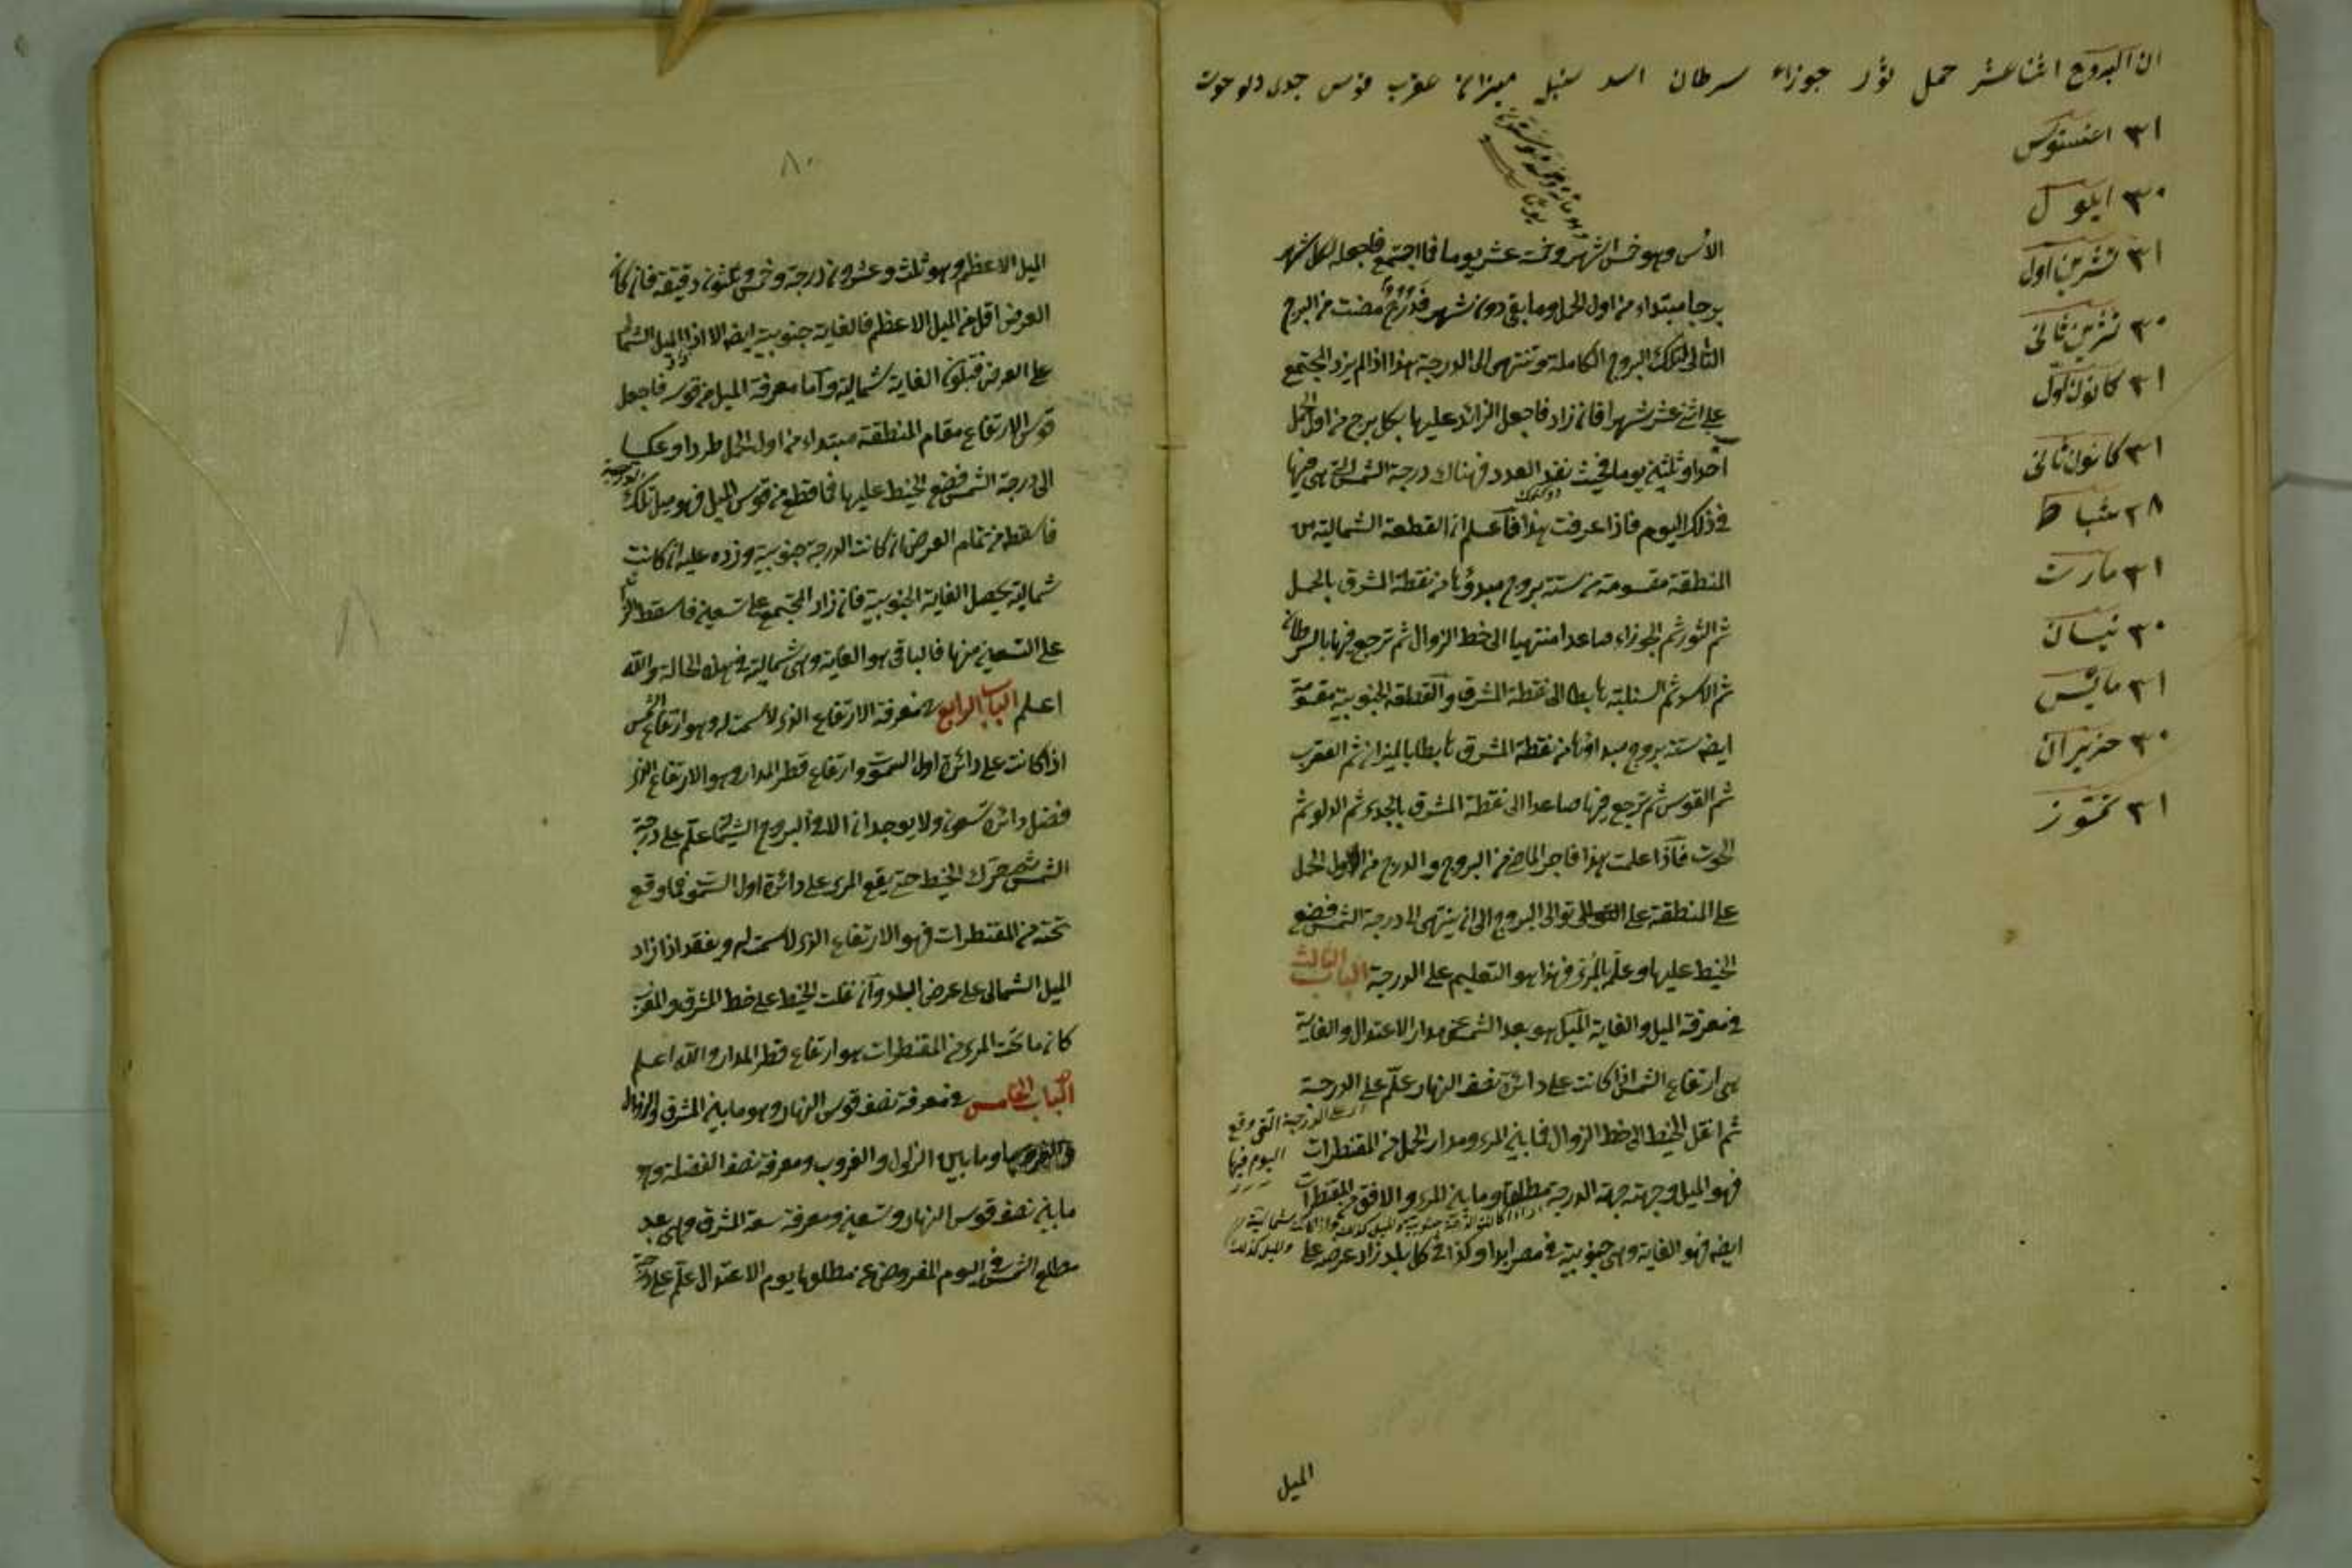 ان البروج اثنا عشر حمل ثور جوزاء سرطان اسد سنبل ميزان عقرب قوس جدى دلو حوت
٣١ اغستوس
٣٠ ايلول
٣١ تشرين اول
٣٠ تشرين ثانى
٣١ كانون اول
٣١ كانون ثانى
٢٨ شباط
٣١ مارت
٣٠ نيسان
٣١ مايس
٣٠ حزيران
٣١ تموز
الأس وهو خمس اشهر وخمسة عشر يوما فما اجتمع فاجعل لكل شهر
برجا مبتداء من اول الحمل وما بقى دون شهر فدرج مضت من البرج
التالى لتلك البروج الكاملة وتنتهى الى الدرجة هذا اذا لم يزد المجتمع
على اثنى عشر شهرا فان زاد فاجعل الزائد عليها لكل برج من اول الحمل
احدا وثلثين يوما فحيث نفد العدد فهناك درجة الشمس التى هى فيها
فى ذلك اليوم فاذا عرفت هذا فاعلم ان القطعة الشمالية من
المنطقة مقسومة ستة بروج مبدؤها من نقطة المشرق بالحمل
ثم الثور ثم الجوزاء صاعدا منتهيا الى خط الزوال ثم ترجع فيها بالسرطان
ثم الاسد ثم السنبلة هابطا الى نقطة المشرق والقطعة الجنوبية مقسومة
ايضا ستة بروج مبداؤها من نقطة المشرق هابطا بالميزان ثم العقرب
ثم القوس ثم ترجع فيها صاعدا الى نقطة المشرق بالجدى ثم الدلو ثم
الحوت فاذا علمت هذا فاجر الماضى من البروج والدرج من اول الحمل
على المنطقة على توالى البروج الى ان ينتهى الى درجة الشمس فضع
الخيط عليها وعلم بالمرى فهذا هو التعليم على الدرجة الباب الثالث
فى معرفة الميل والغاية الميل هو بعد الشمس عن مدار الاعتدال والغاية
هى ارتفاع الشمس اذا كانت على دائرة نصف النهار علم على الدرجة
ثم انقل الخيط الى خط الزوال فما بين المرى ومدار الحمل من المقنطرات
فهو الميل وجهته جهة الدرجة مطلقا وما بين المرى والافق من المقنطرات
ايضا فهو الغاية وهى جنوبية فى مصر ابدا وكذا فى كل بلد زاد عرضه على
الميل
٨٠
الميل الاعظم وهو ثلث وعشرون درجة وخمس وثلثون دقيقة فان كان
العرض اقل من الميل الاعظم فالغاية جنوبية ايضا الا اذا زاد الميل الشمالى
على العرض فتكون الغاية شمالية واما معرفة الميل من قوسه فاجعل
قوس الارتفاع مقام المنطقة مبتداء من اول الحمل طردا وعكسا
الى درجة الشمس فضع الخيط عليها فما قطع من قوس الميل فهو ميل تلك الدرجة
فاسقطه من تمام العرض ان كانت الدرجة جنوبية وزده عليه ان كانت
شمالية يحصل الغاية الجنوبية فان زاد المجتمع على تسعين فاسقط الزائد
على التسعين منها فالباقى هو الغاية وهى شمالية فى هذه الحالة والله
اعلم الباب الرابع فى معرفة الارتفاع الذى لا سمت له وهو ارتفاع الشمس
اذا كانت على دائرة اول السموت وارتفاع قطر المدار وهو الارتفاع الذى
فضل دائره تسعون ولا يوجدان الا فى البروج الشمالية علم على درجة
الشمس ثم حرك الخيط حتى يقع المرى على دائرة اول السموت فما وقع
تحته من المقنطرات فهو الارتفاع الذى لا سمت له ويفقد اذا زاد
الميل الشمالى على عرض البلد وان نقلت الخيط على خط المشرق والمغرب
كان ما تحت المرى من المقنطرات هو ارتفاع قطر المدار والله اعلم
الباب الخامس فى معرفة نصف قوس النهار وهو ما بين المشرق والزوال
وما بين الزوال والغروب ومعرفة نصف الفضلة وهو
ما بين نصف قوس النهار وتسعين ومعرفة سعة المشرق وهى بعد
مطلع الشمس فى اليوم المفروض عن مطلعها يوم الاعتدال علم على درجة